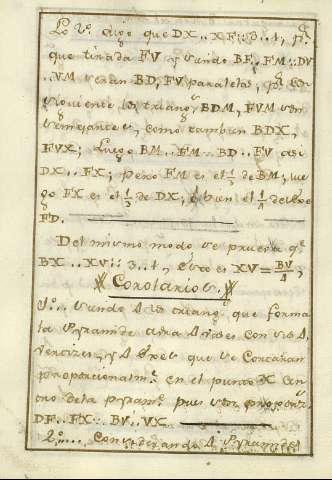 Lo 2º. digo que DX..XF::3..1, pª.
que tirada FV y siendo BF..FM::DV
..VM seran BD, FV paralelas, pr. con
siguiente los triangs. BDM, FVM son
semejantes, como tambien BDX,
FVX; luego BM..FM::BD..FV así
DX..FX; pero FM es el 1/3 de BM; lue
go FX es el 1/3 de DX, ó bien el 1/4 de todo
FD.
Del mismo modo se prueba qe.
BX..XV::3..1 y esto es XV=BV/4;
Corolarios
1º... siendo 4 los triangs. que forma
la Pyramide habrá 4 exes con sus 4
vertizes, y 4 exes que se cortaran
proporcionalmte. en el punto X cen
tro dela pyramde. pues son propors.
DF..FX::BV..VX
2º.... Considerando 4 Pyramides